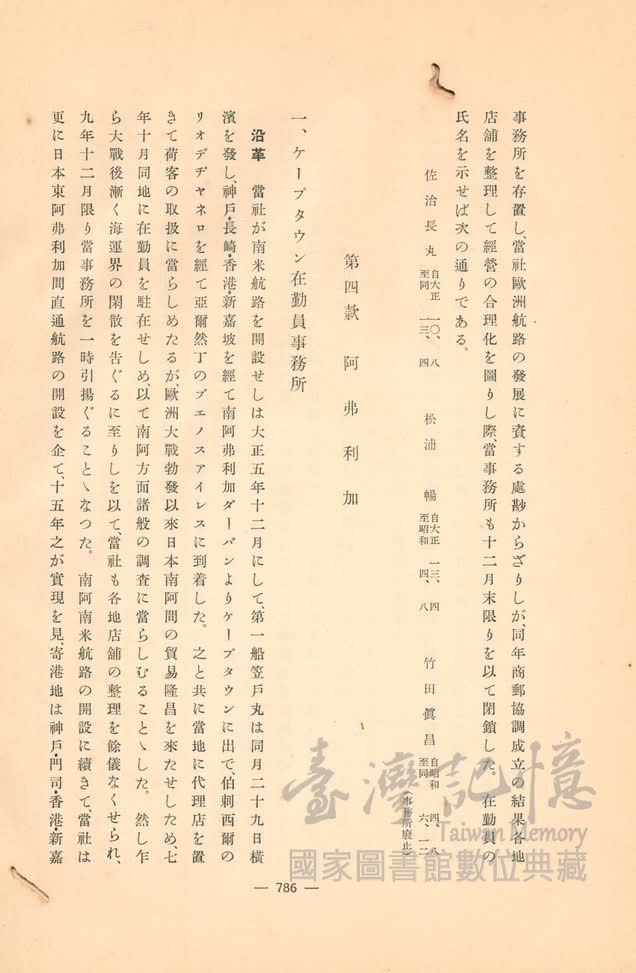 事務所を存置し、當社歐洲航路の發展に資する處尠からざりしが、同年商郵協調成立の結果各地
店舗を整理して經營の合理化を圖りし際、當事務所も十二月末限りを以て閉鎖した。在勤員の
氏名を示せば次の通りである。
佐治長丸 自大正一〇、八 至同一三、四 松浦暢 自大正一三、四 至昭和四、八 竹田眞昌 自昭和四、八 至同六、一二 (事務所廢止)
第四款 阿弗利加
一、ケープタウン在勤員事務所
沿革 當社が南米航路を開設せしは大正五年十二月にして、第一船笠戶丸は同月二十九日橫
濱を發し、神戶・長崎・香港・新嘉坡を經て南阿弗利加ダーバンよりケープタウンに出で、伯刺西爾の
リオデヂャネロを經て亞爾然丁のブエノスアイレスに到着した。之と共に當地に代理店を置
きて荷客の取扱に當らしめたるが、歐洲大戰勃發以來日本南阿間の貿易隆昌を來たせしため、七
年十月同地に在勤員を駐在せしめ、以て南阿方面諸般の調査に當らしむることゝした。然し乍
ら大戰後漸く海運界の閑散を告ぐるに至りしを以て、當社も各地店舗の整理を餘儀なくせられ、
九年十二月限り當事務所を一時引揚ぐることゝなつた。南阿南米航路の開設に續きて、當社は
更に日本東阿弗利加間直通航路の開設を企て、十五年之が實現を見、寄港地は神戶・門司・香港・新嘉
— 786 —
臺灣記憶
Taiwan Memory
國家圖書館數位典藏